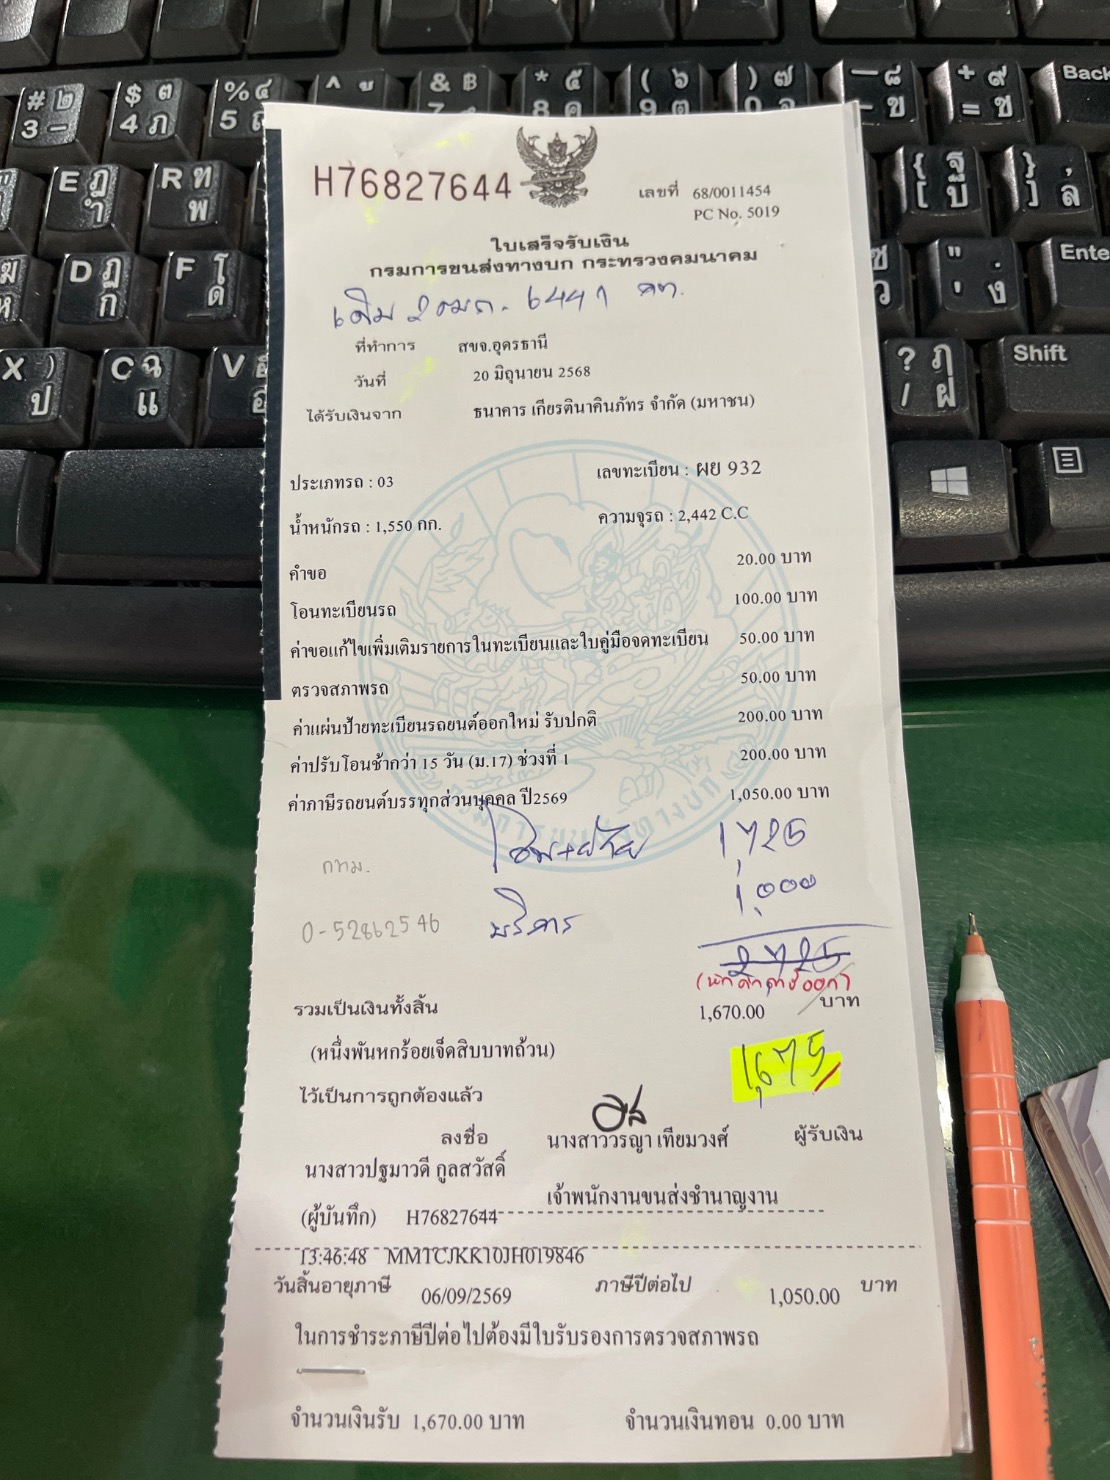 H76827644
เลขที่ 68/0011454
PC No. 5019
ใบเสร็จรับเงิน
กรมการขนส่งทางบก กระทรวงคมนาคม
เดิม 2ฒถ-6441 กท.
ที่ทำการ สขจ.อุดรธานี
วันที่ 20 มิถุนายน 2568
ได้รับเงินจาก ธนาคาร เกียรตินาคินภัทร จำกัด (มหาชน)
ประเภทรถ : 03 เลขทะเบียน : ผย 932
น้ำหนักรถ : 1,550 กก. ความจุรถ : 2,442 C.C
คำขอ 20.00 บาท
โอนทะเบียนรถ 100.00 บาท
ค่าขอแก้ไขเพิ่มเติมรายการในทะเบียนและใบคู่มือจดทะเบียน 50.00 บาท
ตรวจสภาพรถ 50.00 บาท
ค่าแผ่นป้ายทะเบียนรถยนต์ออกใหม่ รับปกติ 200.00 บาท
ค่าปรับโอนช้ากว่า 15 วัน (ม.17) ช่วงที่ 1 200.00 บาท
ค่าภาษีรถยนต์บรรทุกส่วนบุคคล ปี2569 1,050.00 บาท
โอน+ย้าย 1,725
กทม.
บริการ 1,000
0-52862546
2725
(หักค่าภาษีออก)
รวมเป็นเงินทั้งสิ้น 1,670.00 บาท
(หนึ่งพันหกร้อยเจ็ดสิบบาทถ้วน)
1,675
ไว้เป็นการถูกต้องแล้ว
ลงชื่อ นางสาววรญา เทียมวงศ์ ผู้รับเงิน
นางสาวปฐมาวดี กูลสวัสดิ์
เจ้าพนักงานขนส่งชำนาญงาน
(ผู้บันทึก) H76827644
13:46:48 MMTCJKK10JH019846
วันสิ้นอายุภาษี 06/09/2569 ภาษีปีต่อไป 1,050.00 บาท
ในการชำระภาษีปีต่อไปต้องมีใบรับรองการตรวจสภาพรถ
จำนวนเงินรับ 1,670.00 บาท จำนวนเงินทอน 0.00 บาท